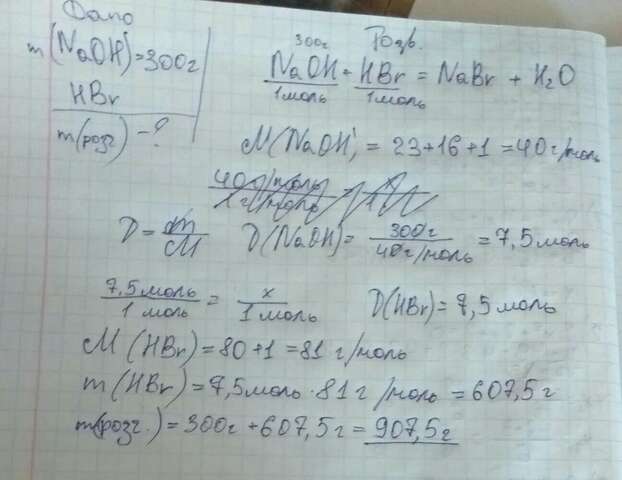 Дано
m(NaOH)=300г
HBr
m(розч) -?
Розв.
300г
NaOH + HBr = NaBr + H₂O
1моль 1моль
M(NaOH) = 23+16+1 = 40 г/моль
D = m/M D(NaOH) = 300г/40г/моль = 7,5 моль
7,5 моль/1 моль = x/1 моль D(HBr) = 7,5 моль
M(HBr) = 80+1 = 81 г/моль
m(HBr) = 7,5моль · 81 г/моль = 607,5г
m(розч.) = 300г + 607,5г = 907,5г